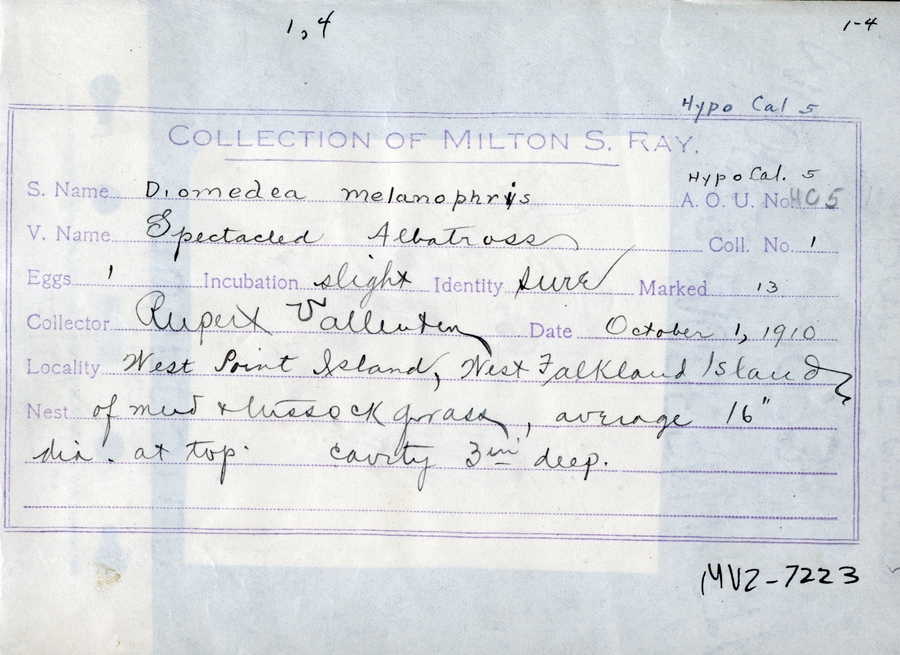 1, 4
1-4
Hypo Cal 5
COLLECTION OF MILTON S. RAY.
Hypo Cal. 5
S. Name Diomedea melanophrys A. O. U. No. 405
V. Name Spectacled Albatross Coll. No. 1
Eggs 1 Incubation slight Identity sure Marked 13
Collector Rupert Vallentin Date October 1, 1910
Locality West Point Island, West Falkland Island
Nest of mud & tussock grass, average 16"
dia. at top. cavity 3 in deep.
MVZ-7223